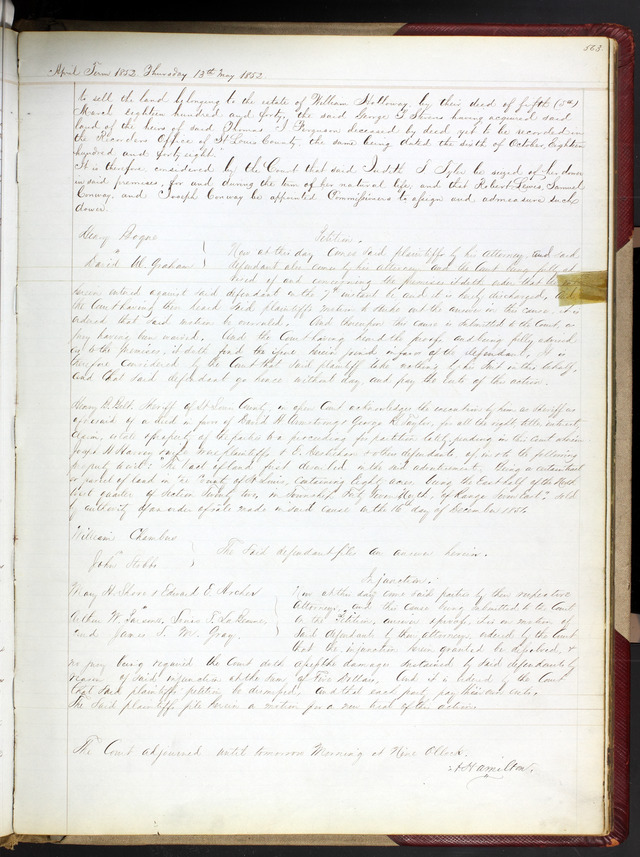 563
April Term 1852 Thursday 13th May 1852
to sell the land belonging to the estate of William Holloway by their deed of fifth (5th)
March eighteen hundred and forty, the said George having acquired said
land of the heirs of said Thomas Ferguson deceased by deed yet to be recorded in
the Recorders Office of St Louis County, the same being dated the sixth of October, Eighteen
hundred and forty eight.
It is therefore considered by the Court that said Judith S Tyler be seized of her dower
in said premises for and during the term of her natural life, and that Robert Lewis, Samuel
Conway, and Joseph Conway be appointed Commissioners to assign and admeasure such
dower.
Henry Petition.
Now at this day comes said plaintiff by his Attorney and said
David W. Graham defendant also comes by his attorney and the Court being fully
of and concerning the premises doth order that the
herein entered against said defendant on the 7th instant be and it is hereby discharged,
the Court having then heard said plaintiffs motion to strike out the answer in this cause, it is
ordered that said motion be overruled. And thereupon this cause is submitted to the Court, a
jury having been waived. And the Court having heard the proofs and being fully advised
as to the premises, it doth find the issue herein joined in favor of the defendant. It is
therefore considered by the Court that said plaintiff take nothing by his suit in this behalf,
and that said defendant go hence without day, and pay the costs of this action.
Henry Belt Sheriff of St Louis County, in open Court acknowledges the execution by him as Sheriff as
aforesaid of a deed in favor of David H Armstrong & George R. Taylor, for all the right, title, interest,
claim, estate & property of the parties to a proceeding for partition lately pending in this Court wherein
Joseph H were plaintiffs & E. & others defendants of in & to the following
property to wit: The last of land first described in the advertisement, being a certain tract
or parcel of land in the County of St Louis, containing Eighty acres being the East half of the North
West quarter of Section Twenty two, in Township Forty Seven North of Range Seven East. sold
by authority of an order of sale made in said cause on the 16th day of December 1851.
William Chambers
The Said defendant files an answer herein.
John Stobbs
Injunction.
Mary H. & Edward E. Now at this day come said parties by their respective
Attorneys, and this cause being submitted to the Court
W. Parsons, Louis T. La Beaume, on the Petition, answer & proofs. It is on motion of
and James S. M. Gray. Said defendants by their attorneys ordered by the Court
that the injunction herein granted be dissolved, &
no jury being required the Court doth assess the damages sustained by said defendants by
reason of said injunction at the sum of Five Dollars. And it is ordered by the Court
that said plaintiffs petition be dismissed. And that each party pay their own costs.
The Said plaintiffs file herein a motion for a new trial of this action.
The Court adjourned until tomorrow Morning at Nine OClock.
A Hamilton.